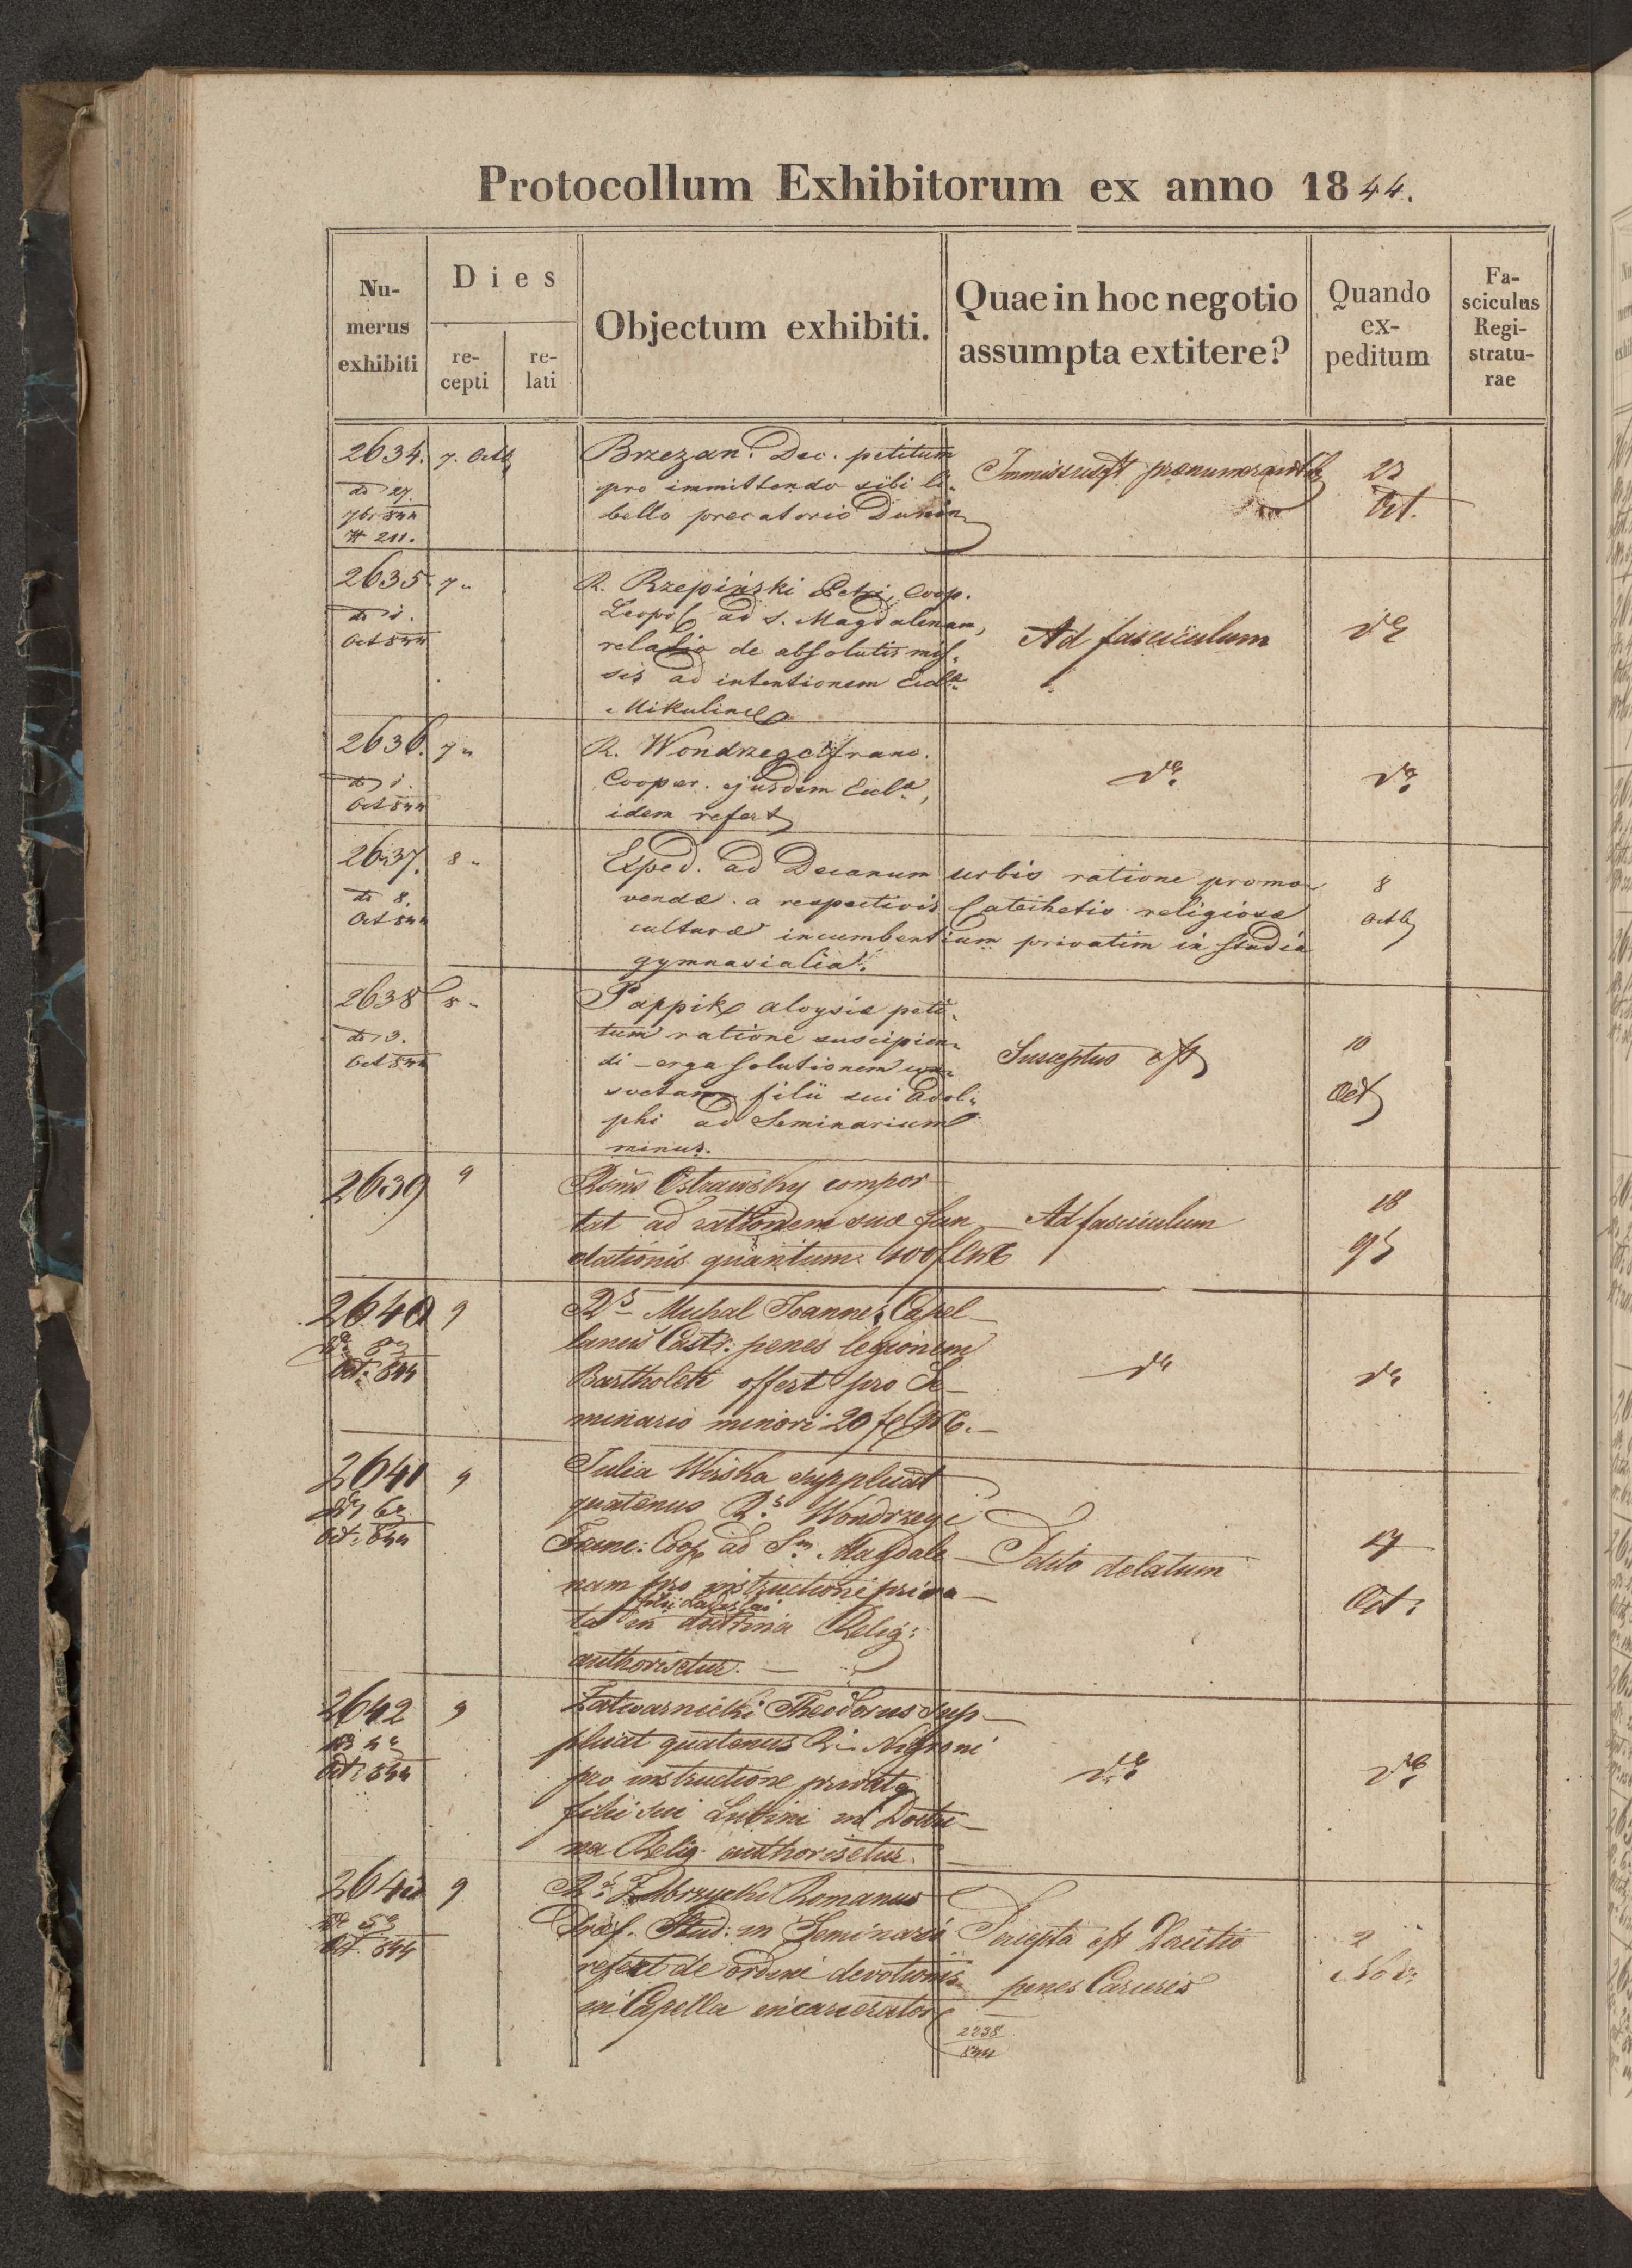 Protocollum Exhibitorum ex anno 1844.
Nu-
merus
exhibiti
Dies
re-
cepti
re-
lati
Objectum exhibiti.
Quae in hoc negotio
assumpta extitere?
Quando
ex-
peditum
Fa-
sciculus
Regi-
stratu-
rae
2634. 7. Octb
dō 27.
7br 844
# 211.
Brzezan. Dec. petitum
pro immittendo sibi li-
bello precatorio Dunin
23
Oct.
2635. 7 "
dō 1.
Oct 844
R. Rzepiński Petri, Coop.
Leopol ad S. Magdalenam,
relatio de absolutis mis-
sis ad intentionem Eccl
Mikulince
Ad fasciculum
dō
2636. 7 "
dō 1.
Oct 844
R. Wondrzegc Franc.
Cooper. ejusdem Eccla,
idem refert
dō
dō
2637. 8 "
dō 8.
Oct 844
Exped. ad Decanum urbis ratione promo-
vendæ a respectivis Catechetis religiosæ
culturæ incumbentium privatim in studia
gymnasialia.
8
Octb
2638 8 "
dō 3.
Oct 844
Pappik Aloysiæ peti-
tum ratione suscipien-
di - erga solutionem con-
suetam filii sui Adol-
phi ad Seminarium
minus.
Susceptus est
10
Oct
2639 9
Rdms Ostrawsky compor-
tat ad rationem suæ fun-
dationis quantum 400 f CM
Ad fasciculum
18
2640 9
dō 8
Oct. 844
Rs Michal Joannes Capel-
lanus Castr: penes legionem
Bartholeti offert pro Se-
minario minori 20 f CM.
dō
dō
2641 9
dō 6
Oct: 844
Julia Wiska supplicat
quatenus Rs Wondrzegc
Franc: Coop ad Sm Magdale-
nam pro instructione priva-
filii Ladislai
ta in doctrina Relig:
authorisetur.
Petito delatum
17
Oct:
2642 9
Oct: 844
Zatwarnicki Theodorus sup-
plicat quatenus R. Nigroni
pro instructione privata
filii sui Lubini in Doctri-
na Relig. authorisetur.
dō
dō
2643 9
dō 5
Oct. 844
Rs Zabrzycki Romanus
Præf. Stud: in Seminario
refert de ordine devotionis
in Capella incarceratorum
penes Carceris
2238
844
2
Nov: